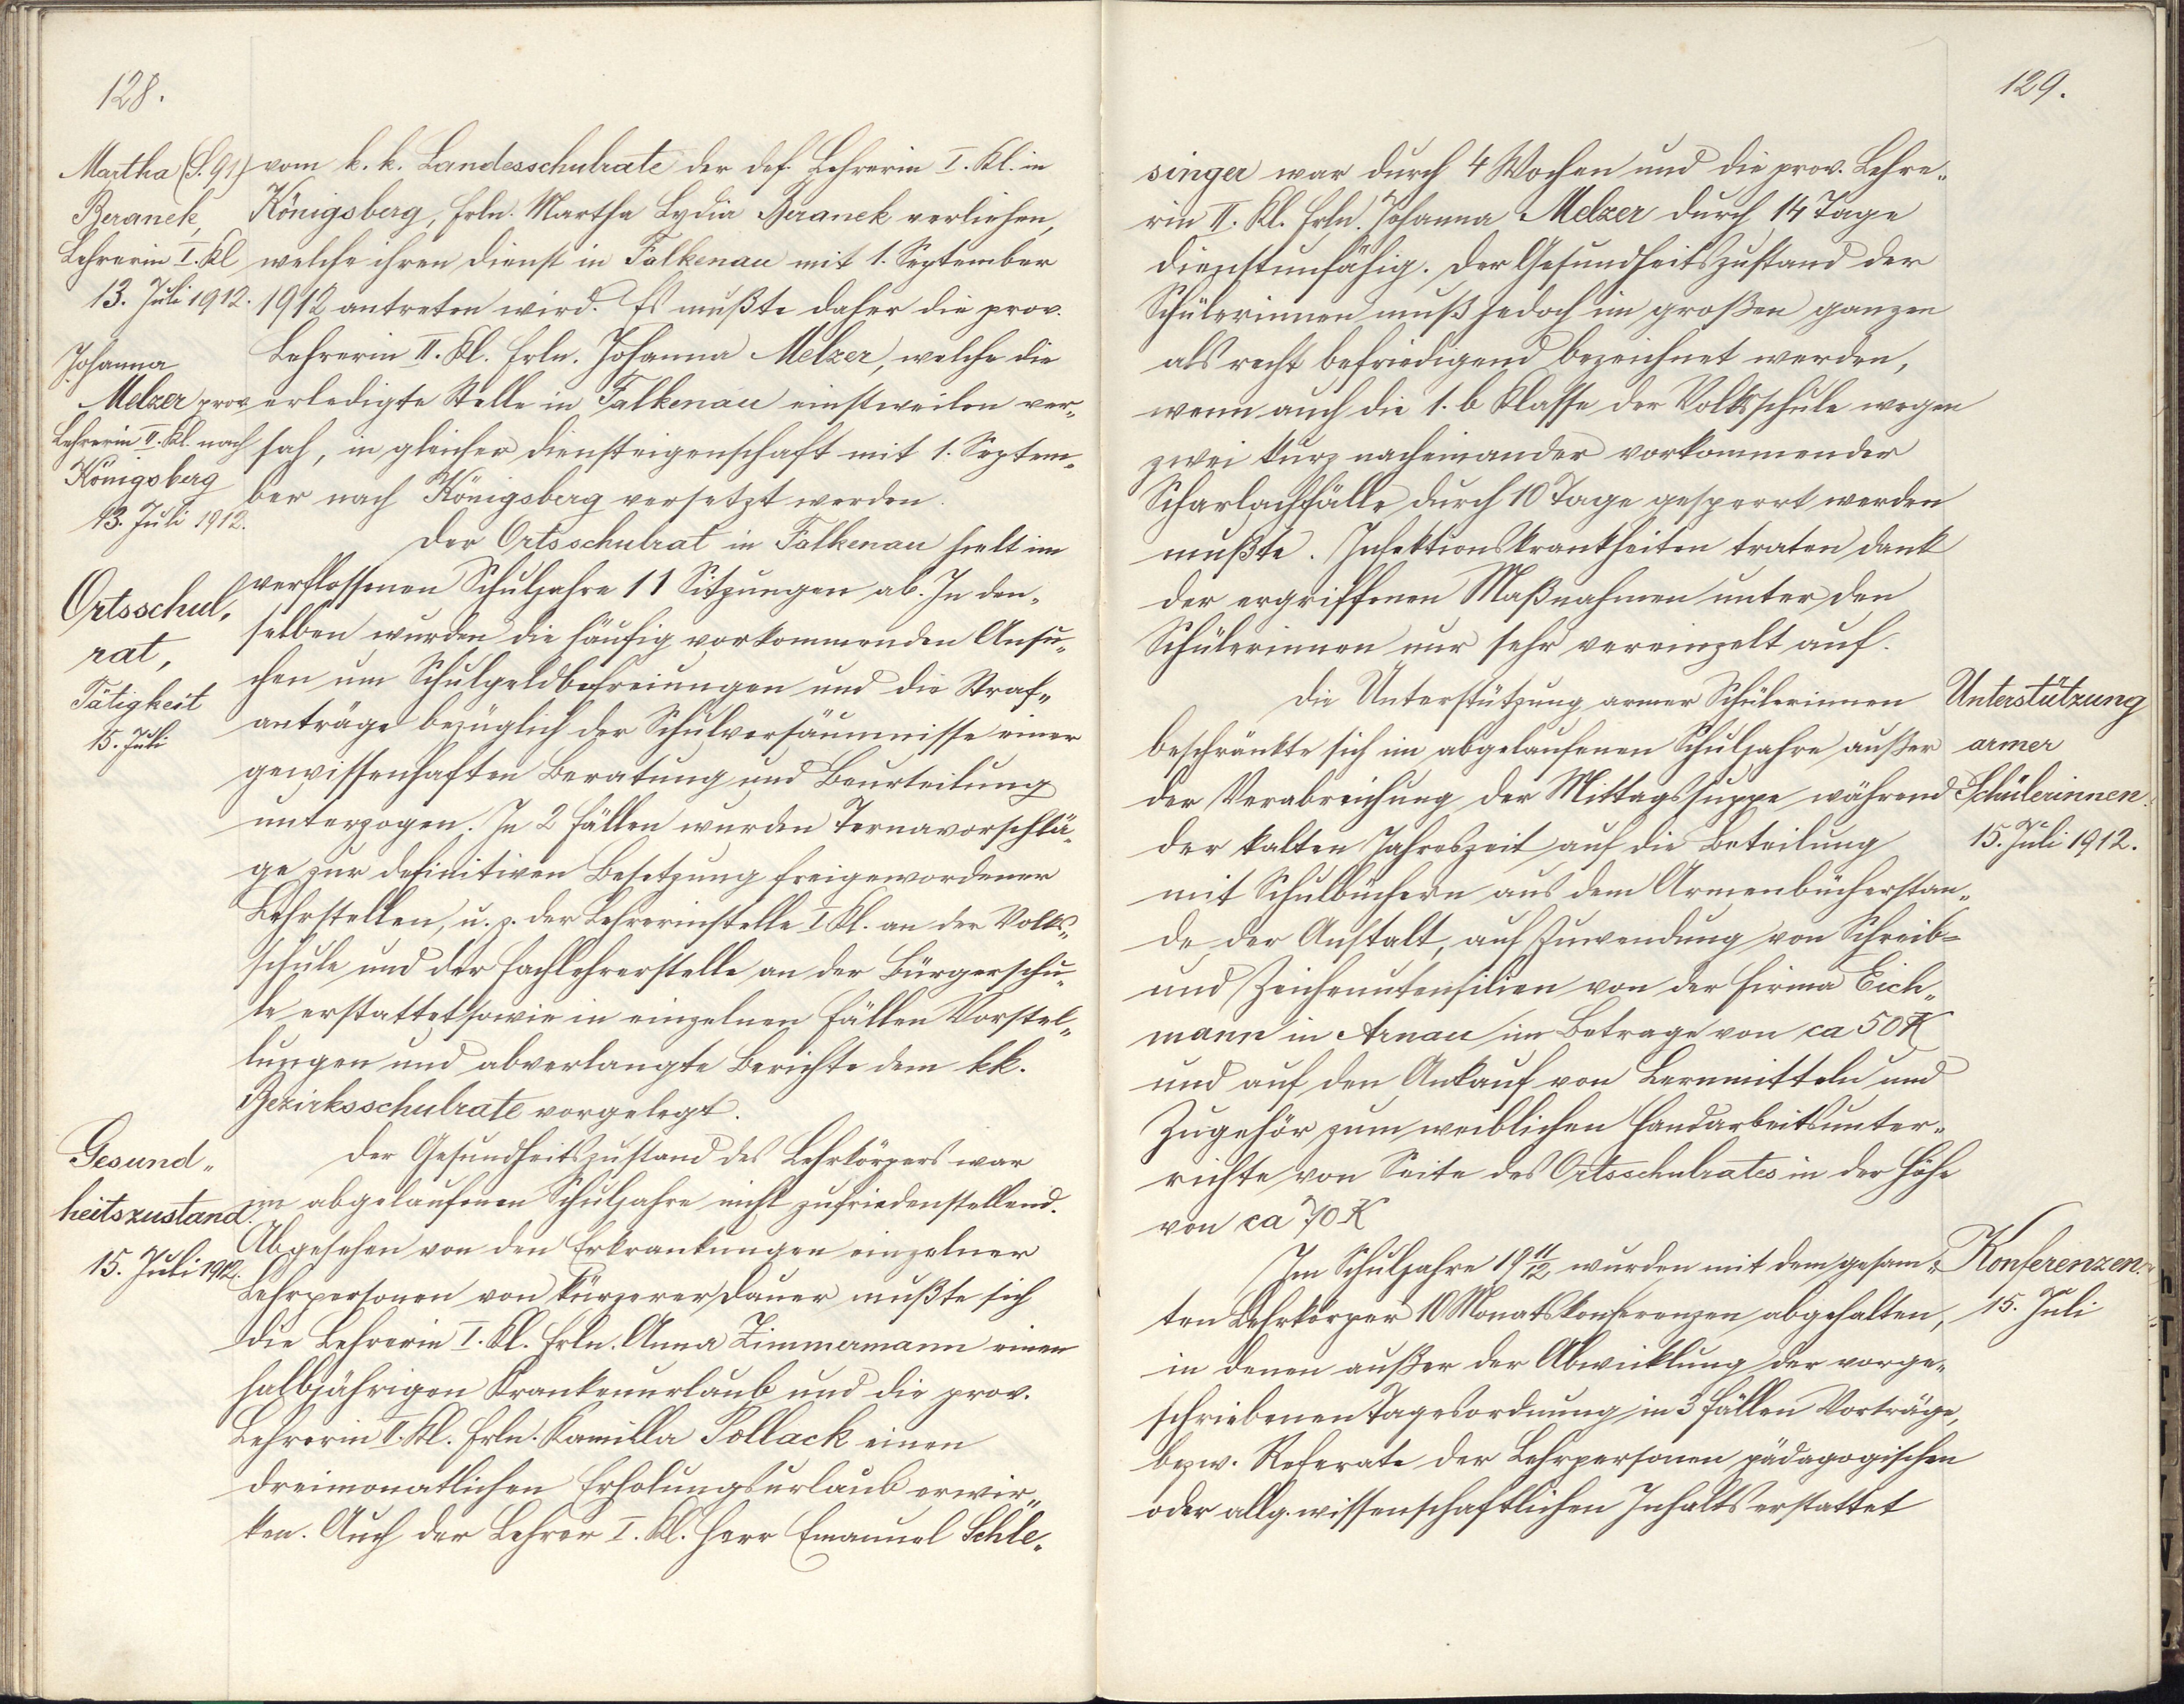 128.
Martha (S. 91)
Beranek,
Lehrerin I. Kl
13. Juli 1912.
Johanna
Melzer prov.
Lehrerin II. Kl. nach
Königsberg
13. Juli 1912.
Ortsschul-
rat,
Tätigkeit
15. Juli
Gesund-
heitszustand.
15. Juli 1912.
vom k. k. Landesschulrate der def. Lehrerin I. Kl. in
Königsberg, Frln. Martha Lydia Beranek verliehen,
welche ihren Dienst in Falkenau mit 1. September
1912 antreten wird. Es mußte daher die prov.
Lehrerin II. Kl. Frln. Johanna Melzer, welche die
erledigte Stelle in Falkenau einstweilen ver-
sah, in gleicher Diensteigenschaft mit 1. Septem-
ber nach Königsberg versetzt werden.
Der Ortsschulrat in Falkenau hielt im
verflossenen Schuljahre 11 Sitzungen ab. In den-
selben wurden die häufig vorkommenden Ansu-
chen um Schulgeldbefreiungen und die Straf-
anträge bezüglich der Schulversäumnisse einer
gewissenhaften Beratung und Beurteilung
unterzogen. In 2 Fällen wurden Ternavorschlä-
ge zur definitiven Besetzung freigewordener
Lehrstellen, u. z. der Lehrerinstelle I. Kl. an der Volks-
schule und der Fachlehrerstelle an der Bürgerschu-
le erstattet sowie in einzelnen Fällen Vorstel-
lungen und abverlangte Berichte dem kk.
Bezirksschulrate vorgelegt.
Der Gesundheitszustand des Lehrkörpers war
im abgelaufenen Schuljahre nicht zufriedenstellend.
Abgesehen von den Erkrankungen einzelner
Lehrpersonen von kürzerer Dauer mußte sich
die Lehrerin I. Kl. Frln. Anna Zimmermann einen
halbjährigen Krankenurlaub und die prov.
Lehrerin II. Kl. Frln. Kamilla Pollack einen
dreimonatlichen Erholungsurlaub erwir-
ken. Auch der Lehrer I. Kl. Herr Emanuel Schle-
129.
singer war durch 4 Wochen und die prov. Lehre-
rin II. Kl. Frln. Johanna Melzer durch 14 Tage
dienstunfähig. Der Gesundheitszustand der
Schülerinnen muß jedoch im großen ganzen
als recht befriedigend bezeichnet werden,
wenn auch die 1. b Klasse der Volksschule wegen
zwei kurz nacheinander vorkommender
Scharlachfälle durch 10 Tage gesperrt werden
mußte. Infektionskrankheiten traten dank
der ergriffenen Maßnahmen unter den
Schülerinnen nur sehr vereinzelt auf.
Die Unterstützung armer Schülerinnen
beschränkte sich im abgelaufenen Schuljahre außer
der Verabreichung der Mittagssuppe während
der kalten Jahreszeit auf die Beteilung
mit Schulbüchern aus dem Armenbücherstan-
de der Anstalt, auf Zuwendung von Schreib-
und Zeichenutensilien von der Firma Eich-
mann in Arnau im Betrage von ca 50 K
und auf den Ankauf von Lernmitteln und
Zugehör zum weiblichen Handarbeitsunter-
richte von Seite des Ortsschulrates in der Höhe
von ca 70 K
Im Schuljahre 19 11/12 wurden mit dem gesam-
ten Lehrkörper 10 Monatskonferenzen abgehalten,
in denen außer der Abwicklung der vorge-
schriebenen Tagesordnung in 3 Fällen Vorträge,
bezw. Referate der Lehrpersonen pädagogischen
oder allg. wissenschaftlichen Inhalts erstattet
Unterstützung
armer
Schülerinnen.
15. Juli 1912.
Konferenzen.
15. Juli